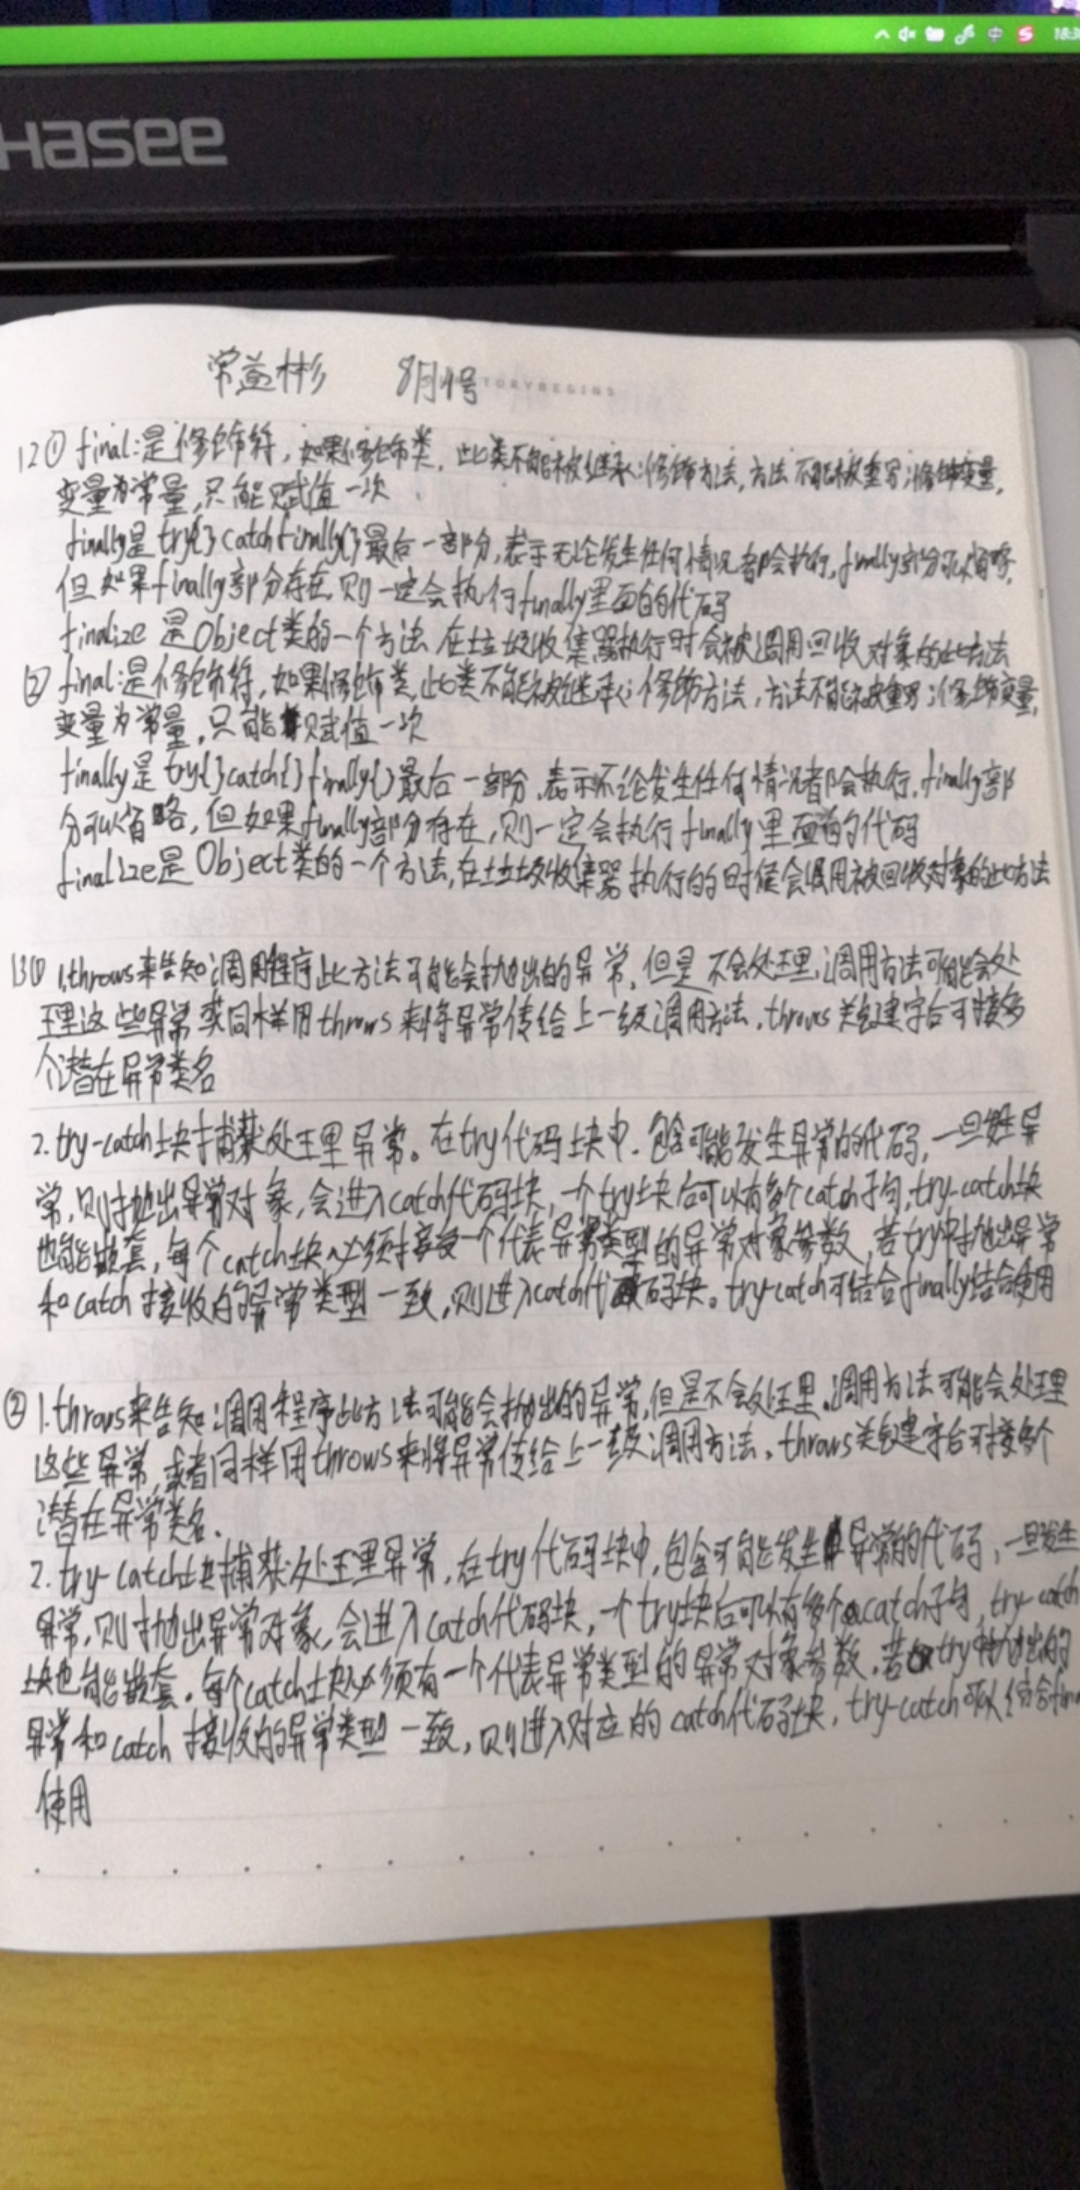 中 S 18:3
Hasee
常益彬 8月4号 TORYBEGINS
12① final:是修饰符，如果修饰类，此类不能被继承;修饰方法，方法不能被重写;修饰变量，
变量为常量，只能赋值一次
finally是try{}catch{}finally{}最后一部分，表示无论发生任何情况者都会执行，finally部分可以省略，
但如果finally部分存在，则一定会执行finally里面的代码
finalize是Object类的一个方法，在垃圾收集器执行时会被调用回收对象的此方法
② final:是修饰符，如果修饰类，此类不能被继承;修饰方法，方法不能被重写;修饰变量，
变量为常量，只能赋值一次
finally是try{}catch{}finally{}最后一部分，表示不论发生任何情况都会执行，finally部
分可以省略，但如果finally部分存在，则一定会执行finally里面的代码
finalize是Object类的一个方法，在垃圾收集器执行的时候会调用被回收对象的此方法
13① 1,throws来告知调用程序此方法可能会抛出的异常，但是不会处理，调用方法可能会处
理这些异常或同样用throws来将异常传给上一级调用方法，throws关键字后可接多
个潜在异常类名
2. try-catch块捕获处理异常。在try代码块中，包含可能发生异常的代码，一旦发生异
常，则抛出异常对象，会进入catch代码块，一个try块后可以有多个catch子句，try-catch块
也能嵌套，每个catch块必须接受一个代表异常类型的异常对象参数，若try中抛出异常
和catch接收的异常类型一致，则进入catch代码块。try-catch可结合finally结合使用
② 1.throws来告知调用程序此方法可能会抛出的异常，但是不会处理，调用方法可能会处理
这些异常，或者同样用throws来将异常传给上一级调用方法。throws关键字后可接多个
潜在异常类名.
2. try-catch块捕获处理异常，在try代码块中，包含可能发生异常的代码，一旦发生
异常，则抛出异常对象，会进入catch代码块，一个try块后可以有多个catch子句，try-catch
块也能嵌套。每个catch块必须有一个代表异常类型的异常对象参数，若try中抛出的
异常和catch接收的异常类型一致，则进入对应的catch代码块，try-catch可以结合fina
使用